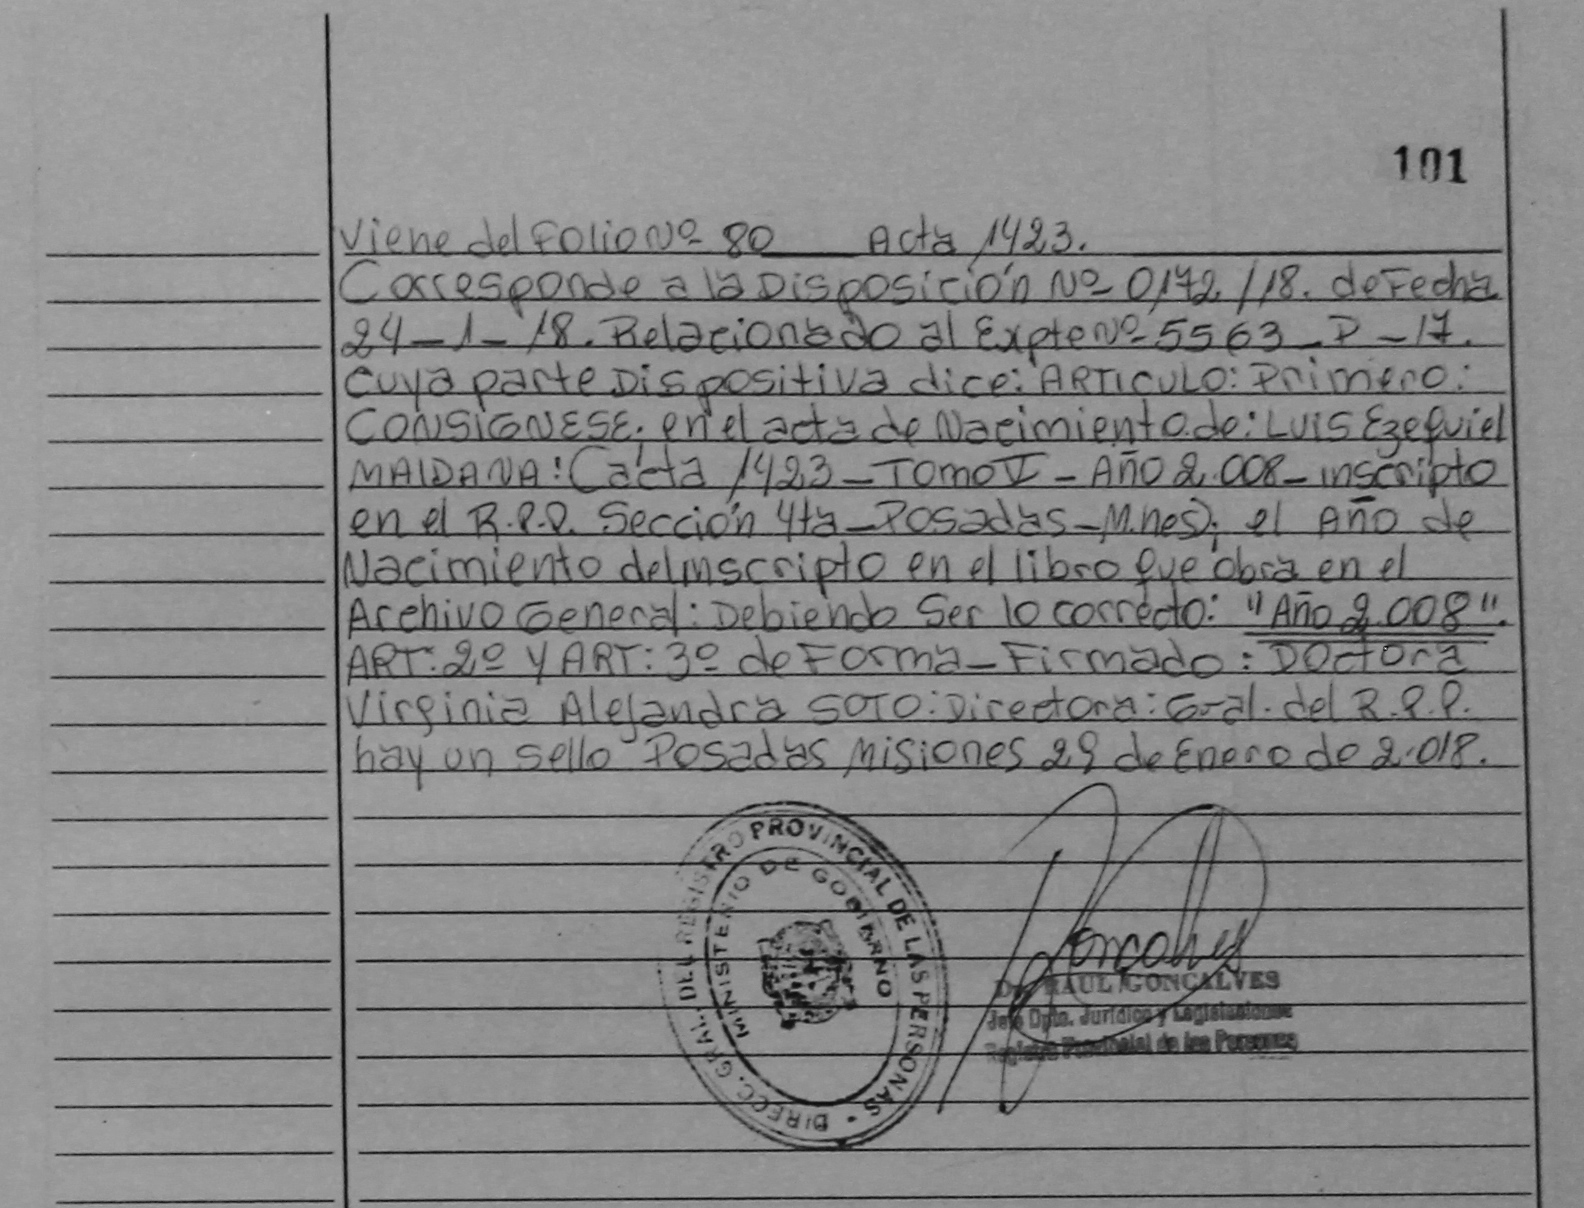 101
Viene del Folio Nº 80 Acta 1423.
Corresponde a la Disposición Nº 0172/18. de Fecha
24-1-18. Relacionado al Expte Nº 5563-P-17.
cuya parte Dispositiva dice: ARTICULO: Primero:
CONSIGNESE; en el acta de Nacimiento de: LUIS Ezequiel
MAIDANA: (acta 1423-Tomo V-Año 2.008-inscripto
en el R.P.P. Sección 4ta-Posadas-M.nes); el Año de
Nacimiento del inscripto en el libro que obra en el
Archivo General: Debiendo Ser lo correcto: "Año 2.008".
ART: 2º Y ART: 3º de Forma-Firmado: Doctora
Virginia Alejandra SOTO: Directora: Gral. del R.P.P.
hay un sello Posadas Misiones 29 de Enero de 2.018.
DIRECC. GRAL. DEL REGISTRO PROVINCIAL DE LAS PERSONAS
MINISTERIO DE GOBIERNO
Goncalves
Dr. RAUL GONCALVES
Jefe Dpto. Jurídico y Legislaciones
Registro Provincial de las Personas